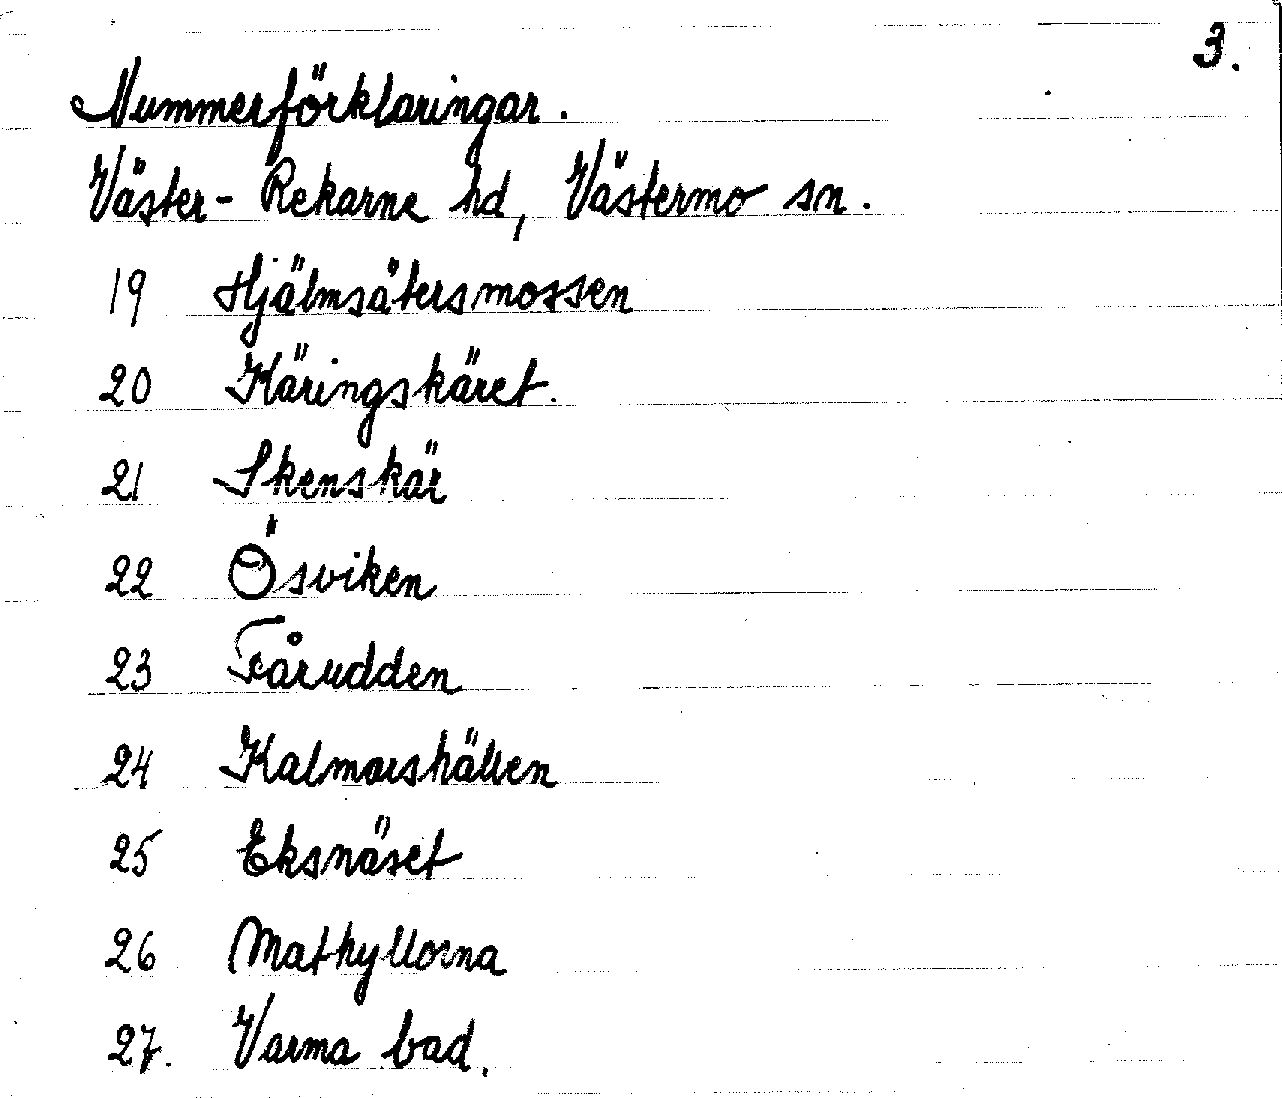 3.
Nummerförklaringar.
Väster-Rekarne hd, Västermo sn.
19 Hjälmsätersmossen
20 Käringskäret.
21 Skenskär
22 Ösviken
23 Fårudden
24 Kalmarshällen
25 Eksnäset
26 Mathyllorna
27. Varma bad.